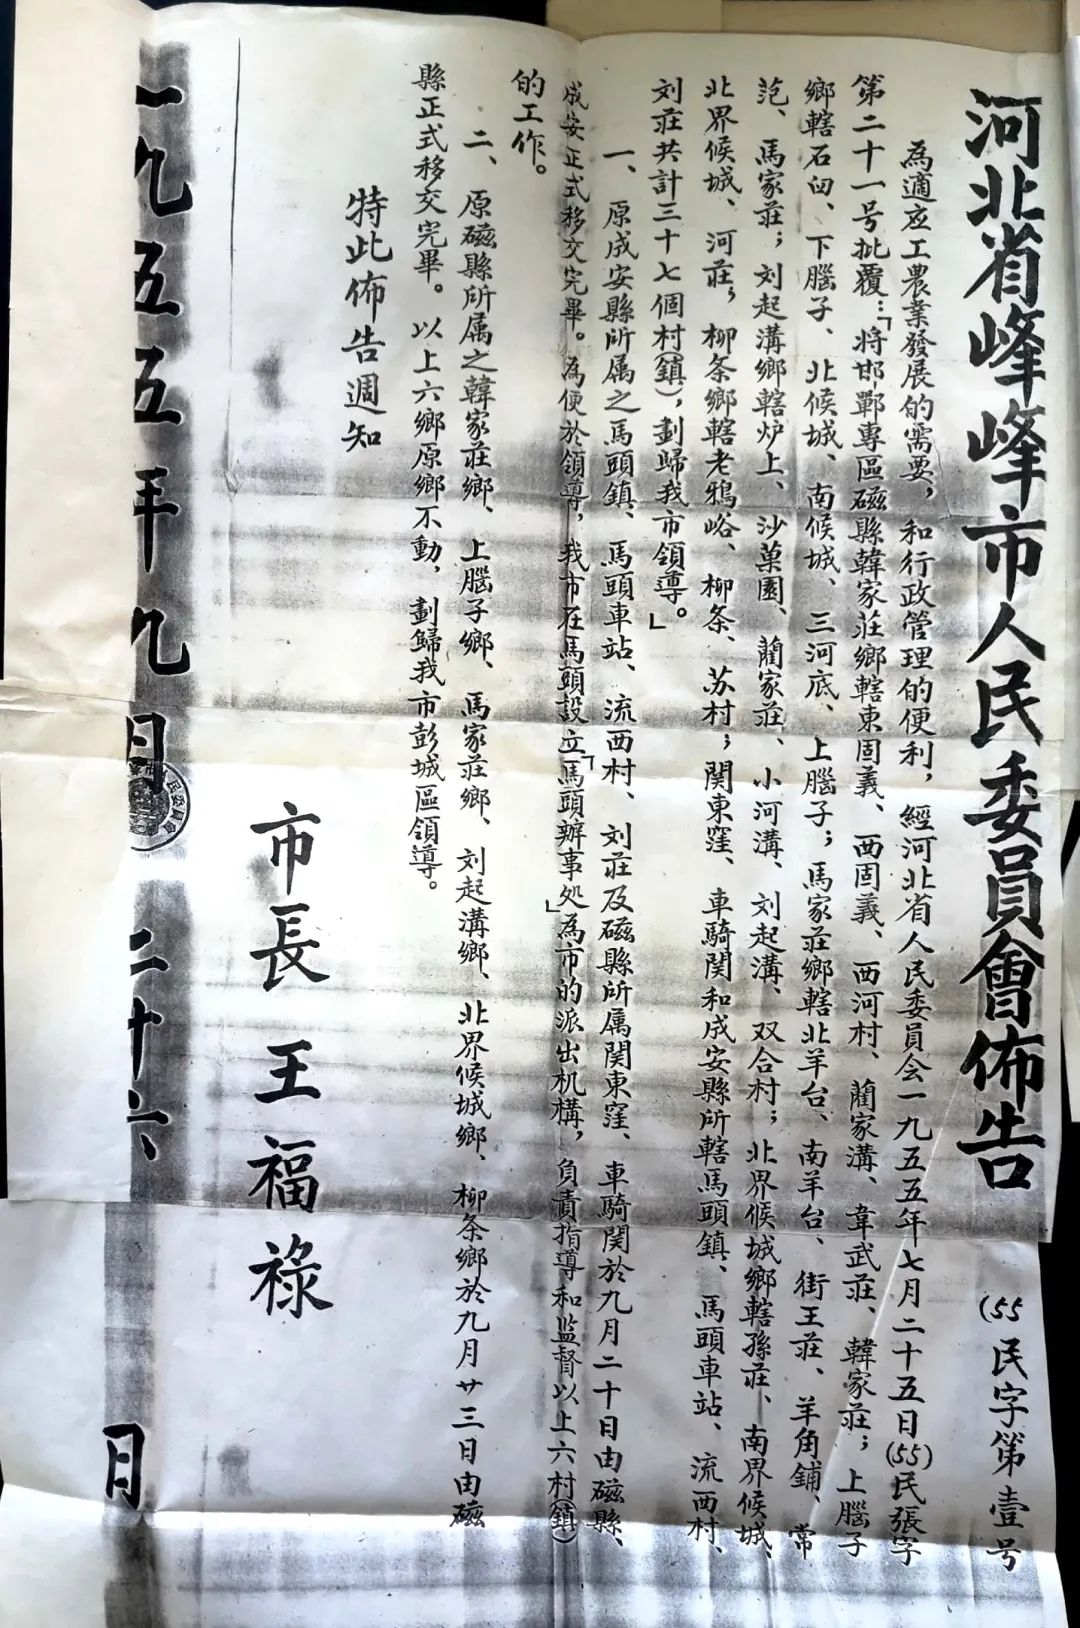 河北省峰峰市人民委員會佈告
(55民字第壹号
為適应工農業發展的需要，和行政管理的便利，經河北省人民委員会一九五五年七月二十五日(55)民張字
第二十一号批覆：「將邯鄲專區磁縣韓家莊鄉轄東固義、西固義、西河村、藺家溝、韋武莊、韓家莊；上腦子
鄉轄石臼、下腦子、北候城、南候城、三河底、上腦子；馬家莊鄉轄北羊台、南羊台、街王莊、羊角鋪、常
范、馬家莊；刘起溝鄉轄炉上、沙菓園、藺家莊、小河溝、刘起溝、双合村；北界候城鄉轄孫莊、南界候城、
北界候城、河莊；柳条鄉轄老鴉峪、柳条、苏村；関東窪、車騎関和成安縣所轄馬頭鎮、馬頭車站、流西村、
刘莊共計三十七個村(鎮)，劃歸我市領導。」
一、原成安縣所属之馬頭鎮、馬頭車站、流西村、刘莊及磁縣所属関東窪、車騎関於九月二十日由磁縣、
成安正式移交完畢。為便於領導，我市在馬頭設立「馬頭辦事処」為市的派出机構，負責指導和監督以上六村(鎮)
的工作。
二、原磁縣所属之韓家莊鄉、上腦子鄉、馬家莊鄉、刘起溝鄉、北界候城鄉、柳条鄉於九月廿三日由磁
縣正式移交完畢。以上六鄉原鄉不動，劃歸我市彭城區領導。
特此佈告週知
市長王福祿
一九五五年九月二十六日